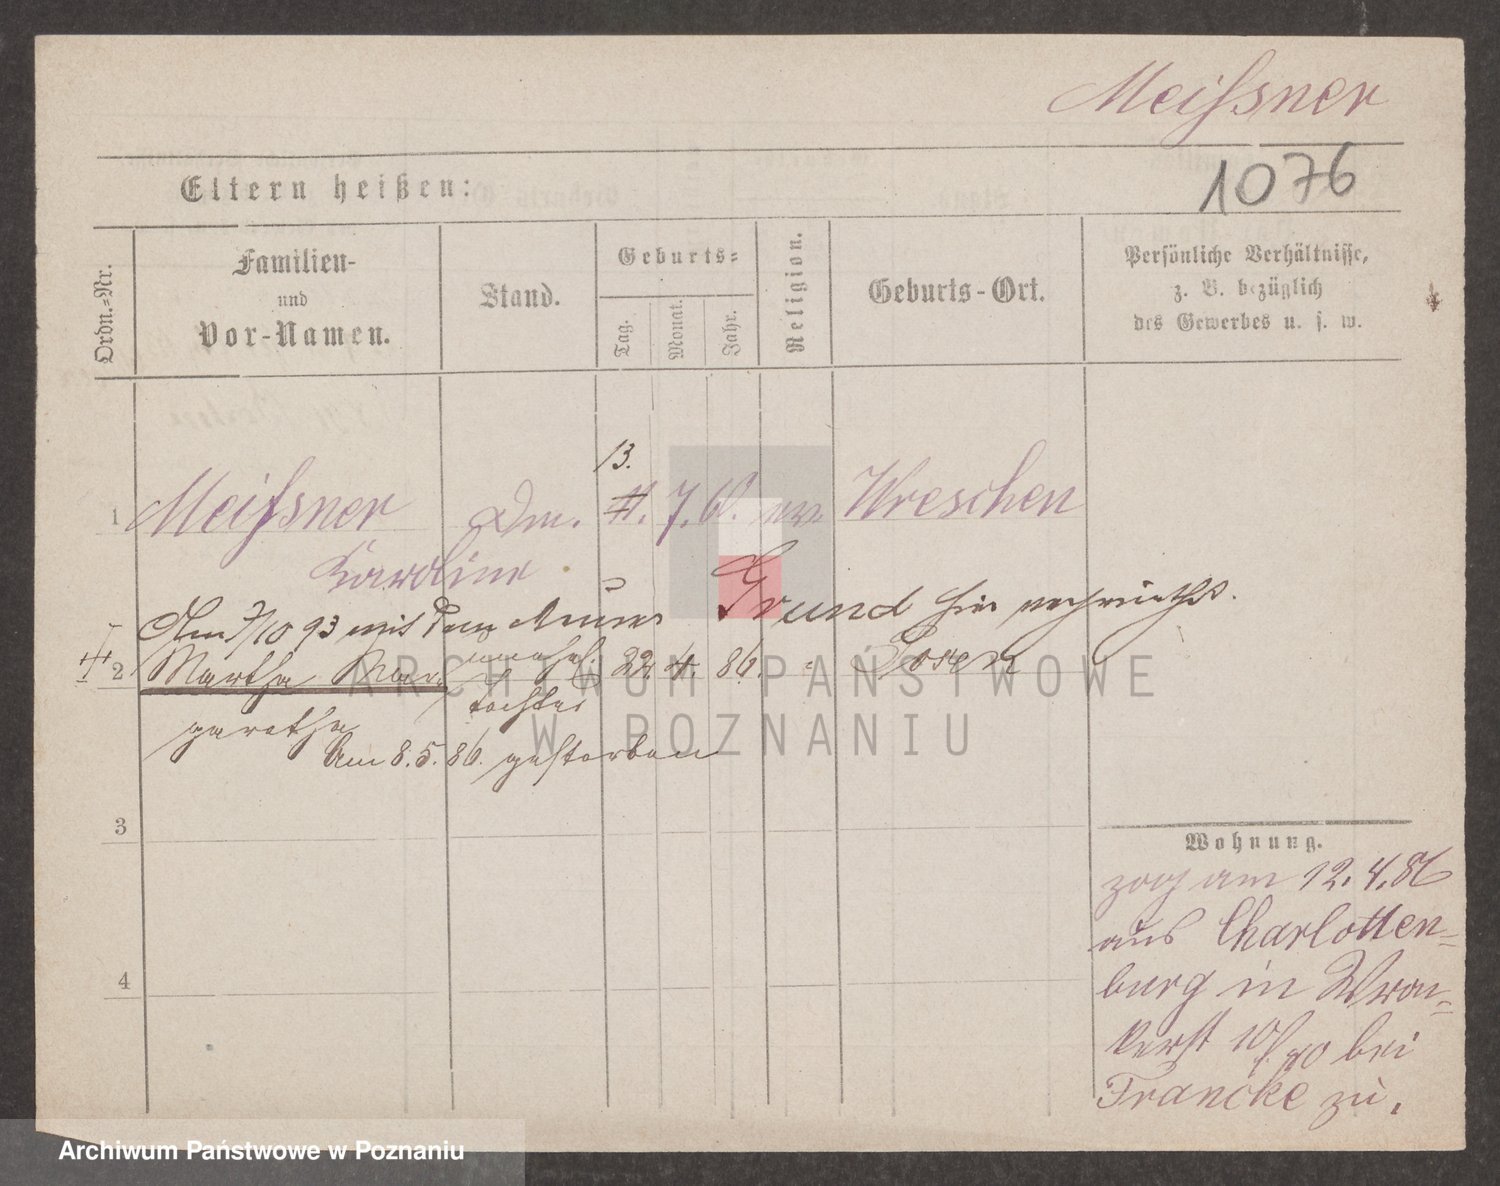 Meißner
1076
Eltern heißen:
Ordn.-Nr.
Familien-
und
Vor-Namen.
Stand.
Geburts-
Tag.
Monat.
Jahr.
Religion.
Geburts-Ort.
Persönliche Verhältnisse,
z. B. bezüglich
des Gewerbes u. s. w.
13.
1 Meißner 7. Wreschen
Karoline
Am 7/10 93 mit dem Grund hier
2 Martha Mar- unehel. 22. 4. 86. Posen
garetha Tochter
Am 8.5.86. gestorben
3
4
Wohnung.
zog am 12.4.86
aus Charlotten-
burg in Wron-
kerst 10/ bei
Francke zu.
ARCHIWUM PAŃSTWOWE
W POZNANIU
Archiwum Państwowe w Poznaniu